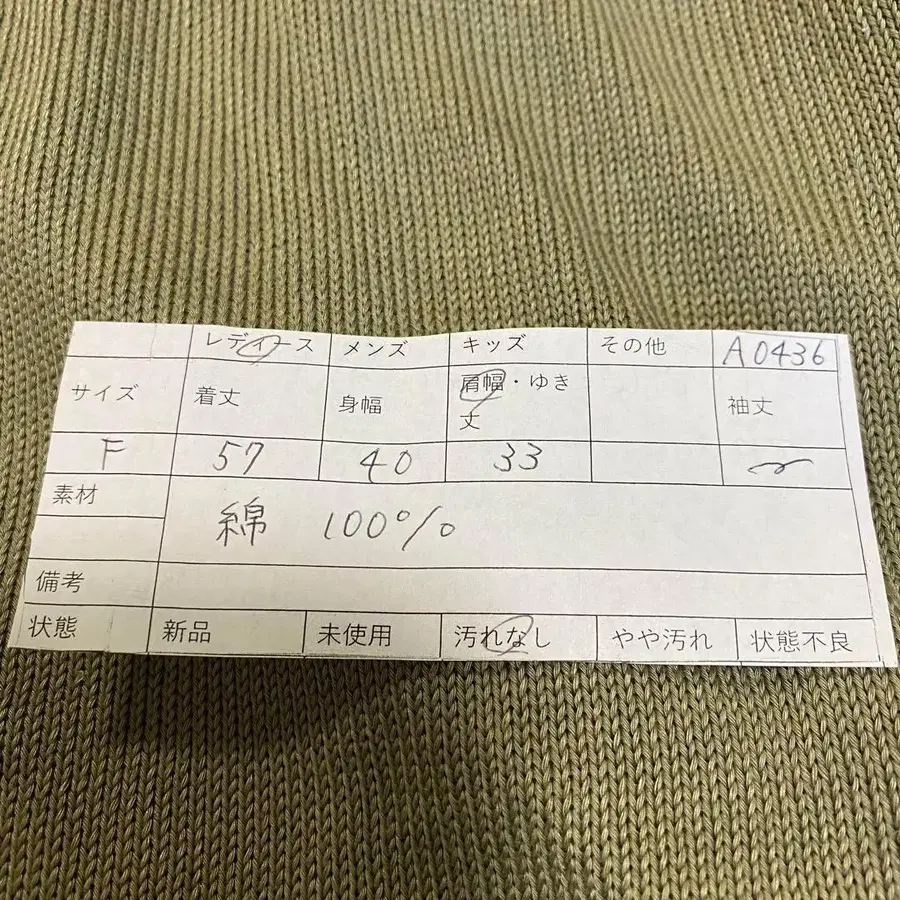 レディース メンズ キッズ その他 A0436
サイズ 着丈 身幅 肩幅・ゆき丈 袖丈
F 57 40 33
素材 綿 100%
備考
状態 新品 未使用 汚れなし やや汚れ 状態不良